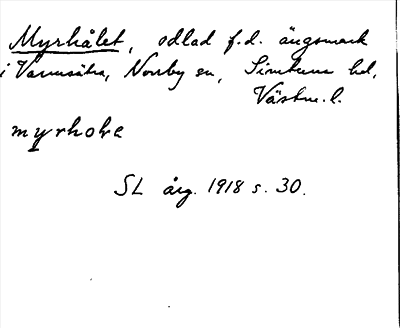 Myrhålet, odlad f.d. ängsmark
i Vannsätra, Norrby sn, Simtuna hd,
Västm. l.
myrhole
SL årg. 1918 s. 30.